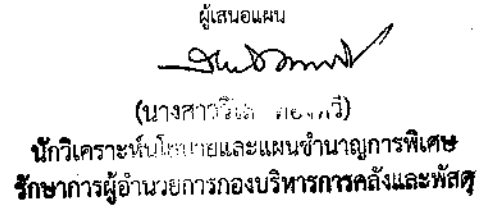 ผู้เสนอแผน
(นางสาว
นักวิเคราะห์นโยบายและแผนชำนาญการพิเศษ
รักษาการผู้อำนวยการกองบริหารการคลังและพัสดุ